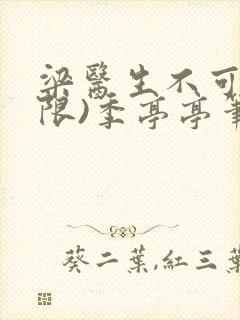 梁醫生不可
限)季亭亭筆
葵二葉,紅三葉